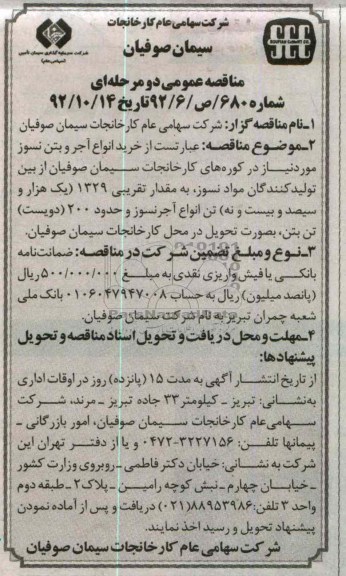 شرکت سهامی عام کارخانجات
سیمان صوفیان
مناقصه عمومی دو مرحله‌ای
شماره ۶۸۰/ص/۹۲/۶ تاریخ ۹۲/۱۰/۱۴
۱ـ نام مناقصه گزار: شرکت سهامی عام کارخانجات سیمان صوفیان
۲ـ موضوع مناقصه: عبارتست از خرید انواع آجر و بتن نسوز
موردنیاز در کوره‌های کارخانجات سیمان صوفیان از بین
تولیدکنندگان مواد نسوز، به مقدار تقریبی ۱۳۲۹ (یک هزار و
سیصد و بیست و نه) تن انواع آجرنسوز و حدود ۲۰۰ (دویست)
تن بتن، بصورت تحویل در محل کارخانجات سیمان صوفیان.
۳ـ نوع و مبلغ تضمین شرکت در مناقصه: ضمانت‌نامه
بانکی یا فیش واریزی نقدی به مبلغ ۵۰۰/۰۰۰/۰۰۰ ریال
(پانصد میلیون) ریال به حساب ۰۱۰۶۰۴۷۹۴۷۰۰۸ بانک ملی
شعبه چمران تبریز به نام شرکت سیمان صوفیان.
۴ـ مهلت و محل دریافت و تحویل اسناد مناقصه و تحویل
پیشنهادها:
از تاریخ انتشار آگهی به مدت ۱۵ (پانزده) روز در اوقات اداری
به‌نشانی: تبریز ـ کیلومتر ۳۳ جاده تبریز ـ مرند، شرکت
سهامی عام کارخانجات سیمان صوفیان، امور بازرگانی ـ
پیمانها تلفن: ۳۲۲۷۱۵۶-۰۴۷۲ و یا از دفتر تهران این
شرکت به نشانی: خیابان دکتر فاطمی ـ روبروی وزارت کشور
ـ خیابان چهارم ـ نبش کوچه رامین ـ پلاک ۲ ـ طبقه دوم
واحد ۳ تلفن: ۸۸۹۵۳۹۸۶(۰۲۱) دریافت و پس از آماده نمودن
پیشنهاد تحویل و رسید اخذ نمایند.
شرکت سهامی عام کارخانجات سیمان صوفیان